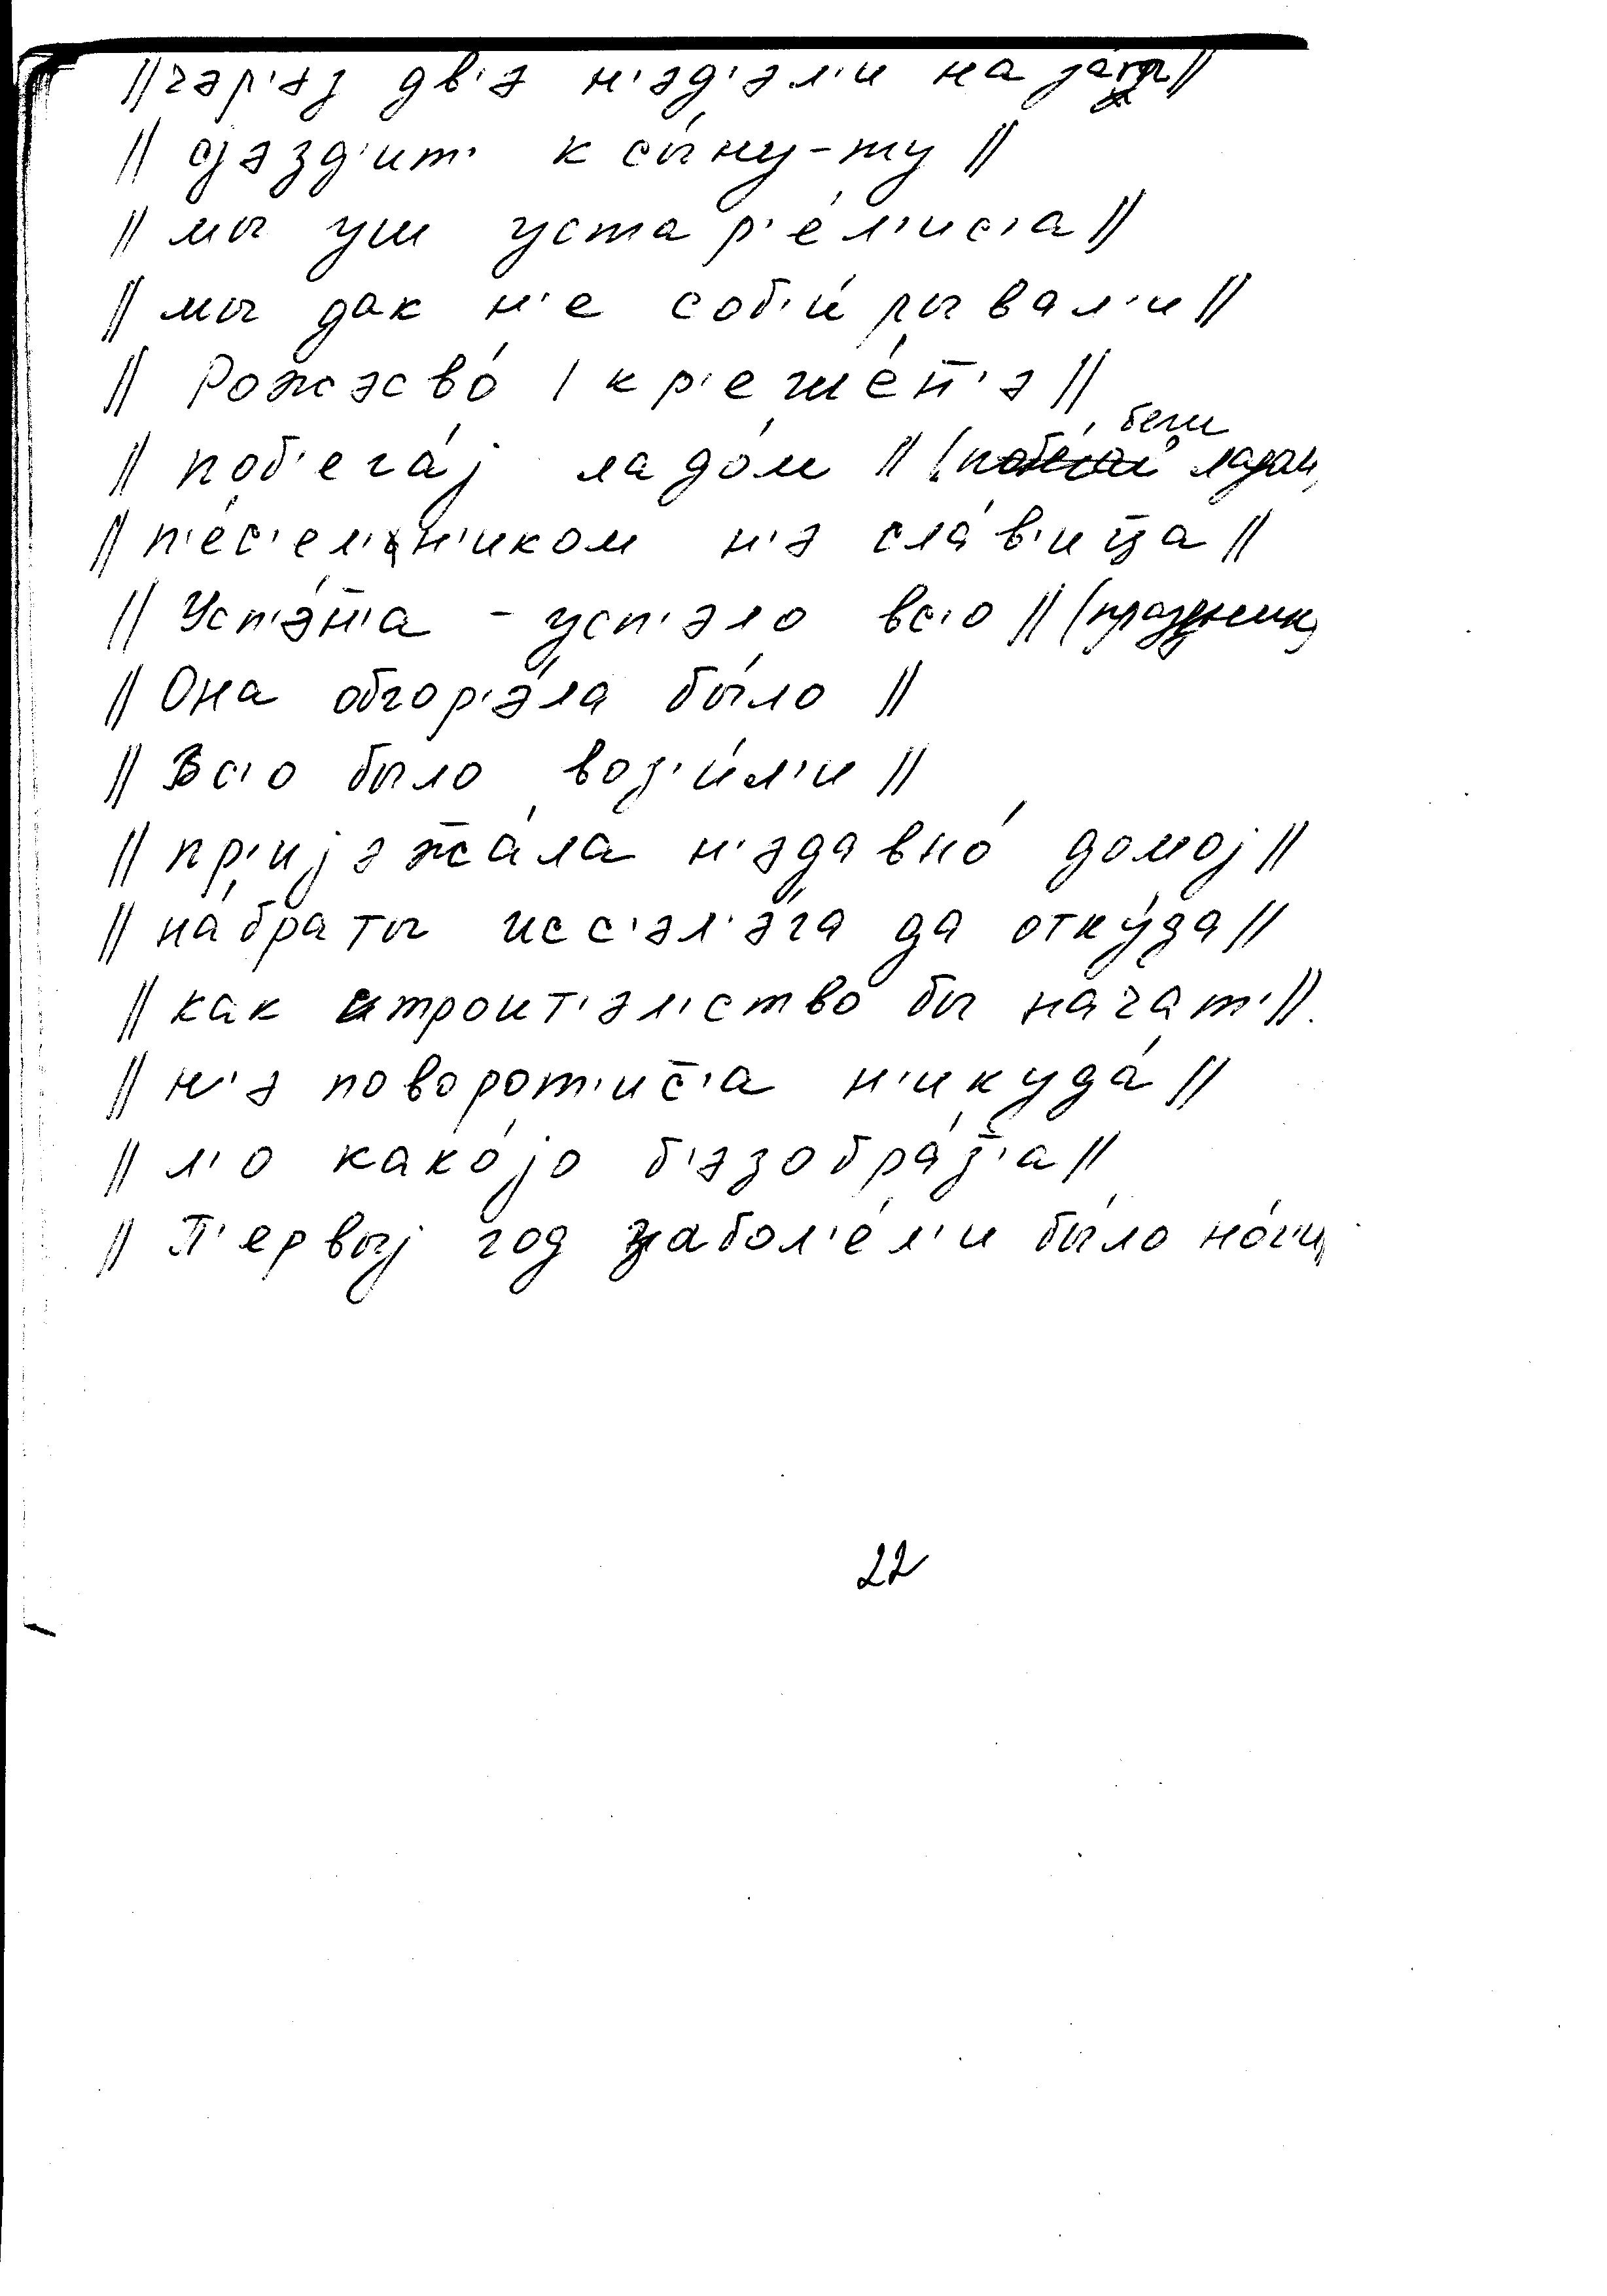 // чэр'эз дв'э н'эд'эл'и на
// сjэзд'ит' к сы́ну-ту //
// мы уш устар'е́л'ис'а //
// мы дак н'е соб'и́рывал'и //
// Рожэсво́ / кр'ешше́н̄'э //
// поб'ега́j ладо́м // (беги ладом)
// п'е́с'ел'н'иком н'э сла́в'иц̄а //
// Усп'э́н̄'а - усп'эло вс'о // (праздник)
// Она обгор'э́ла бы́ло //
// Вс'о было воз'и́л'и //
// пр'иjэж̄а́ла н'эдавно́ домоj //
// на́браты исс'эл'э́га да отку́да //
// как строит'эл'ство бы начат' //
// н'э поворот'ис̄'а н'икуда́ //
// л'о како́jо б'эзобра́з̄'а //
// П'ервыj год забол'е́л'и бы́ло но́г'и
22